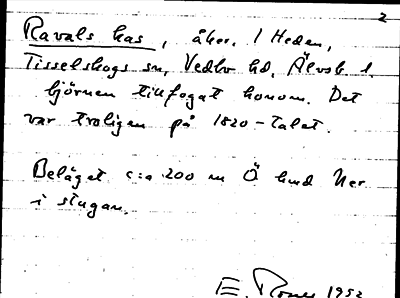 2
Ravals has, åker, 1 Heden,
Tisselskogs sn, Vedbo hd, Älvsb. l.
björnen tillfogat honom. Det
var troligen på 1820-talet.
Beläget c:a 200 m Ö
i stugan.
E. 1952